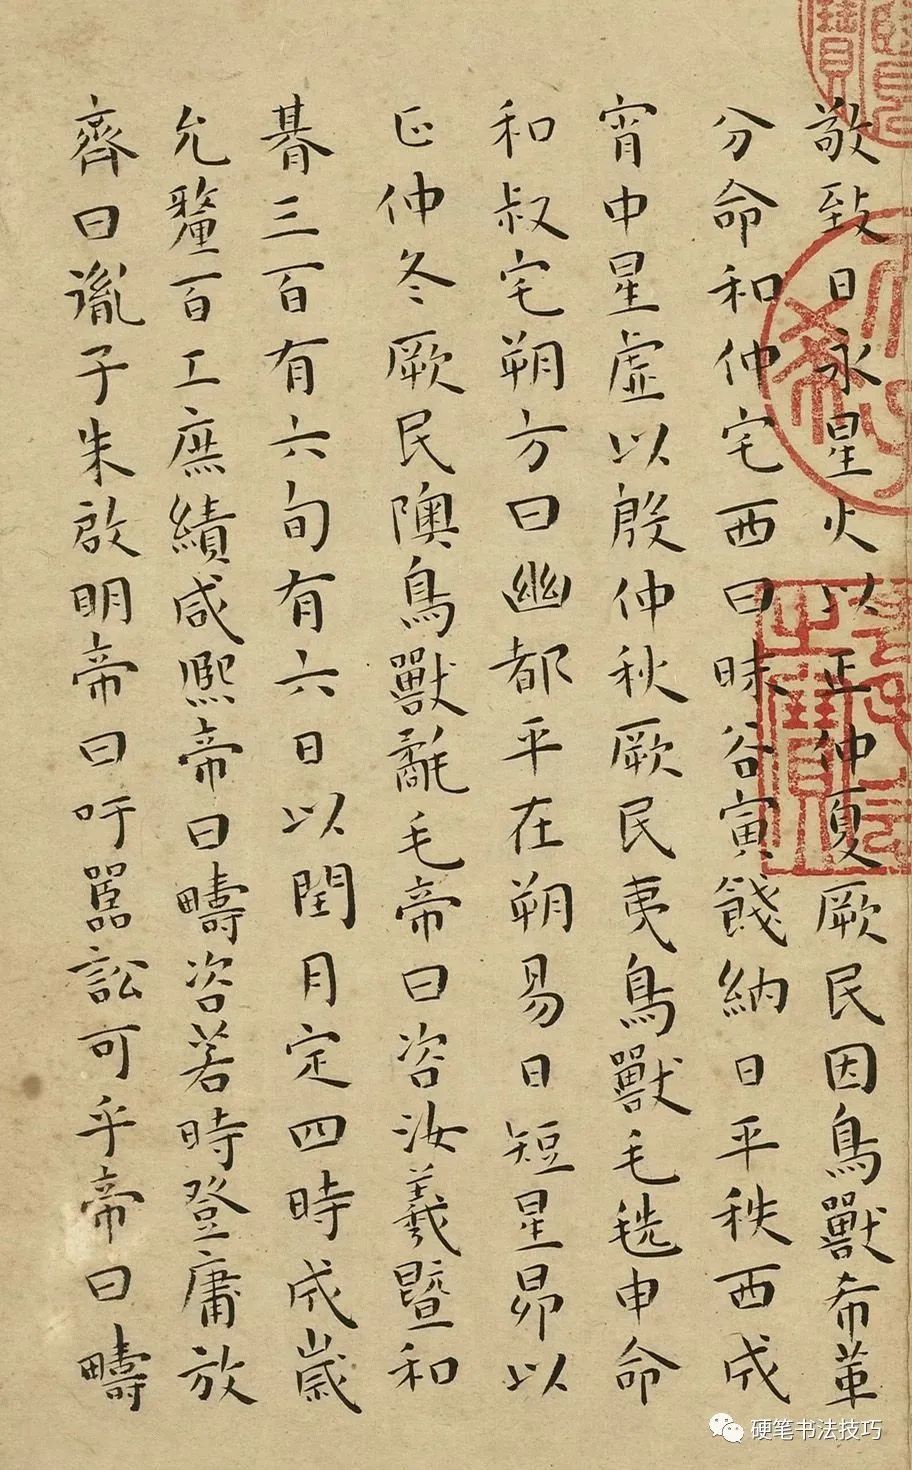 敬致日永星火以正仲夏厥民因鳥獸希革
分命和仲宅西曰昧谷寅餞納日平秩西成
宵中星虛以殷仲秋厥民夷鳥獸毛毨申命
和叔宅朔方曰幽都平在朔易日短星昴以
正仲冬厥民隩鳥獸氄毛帝曰咨汝羲暨和
朞三百有六旬有六日以閏月定四時成歲
允釐百工庶績咸熙帝曰疇咨若時登庸放
齊曰胤子朱啟明帝曰吁嚚訟可乎帝曰疇
硬笔书法技巧